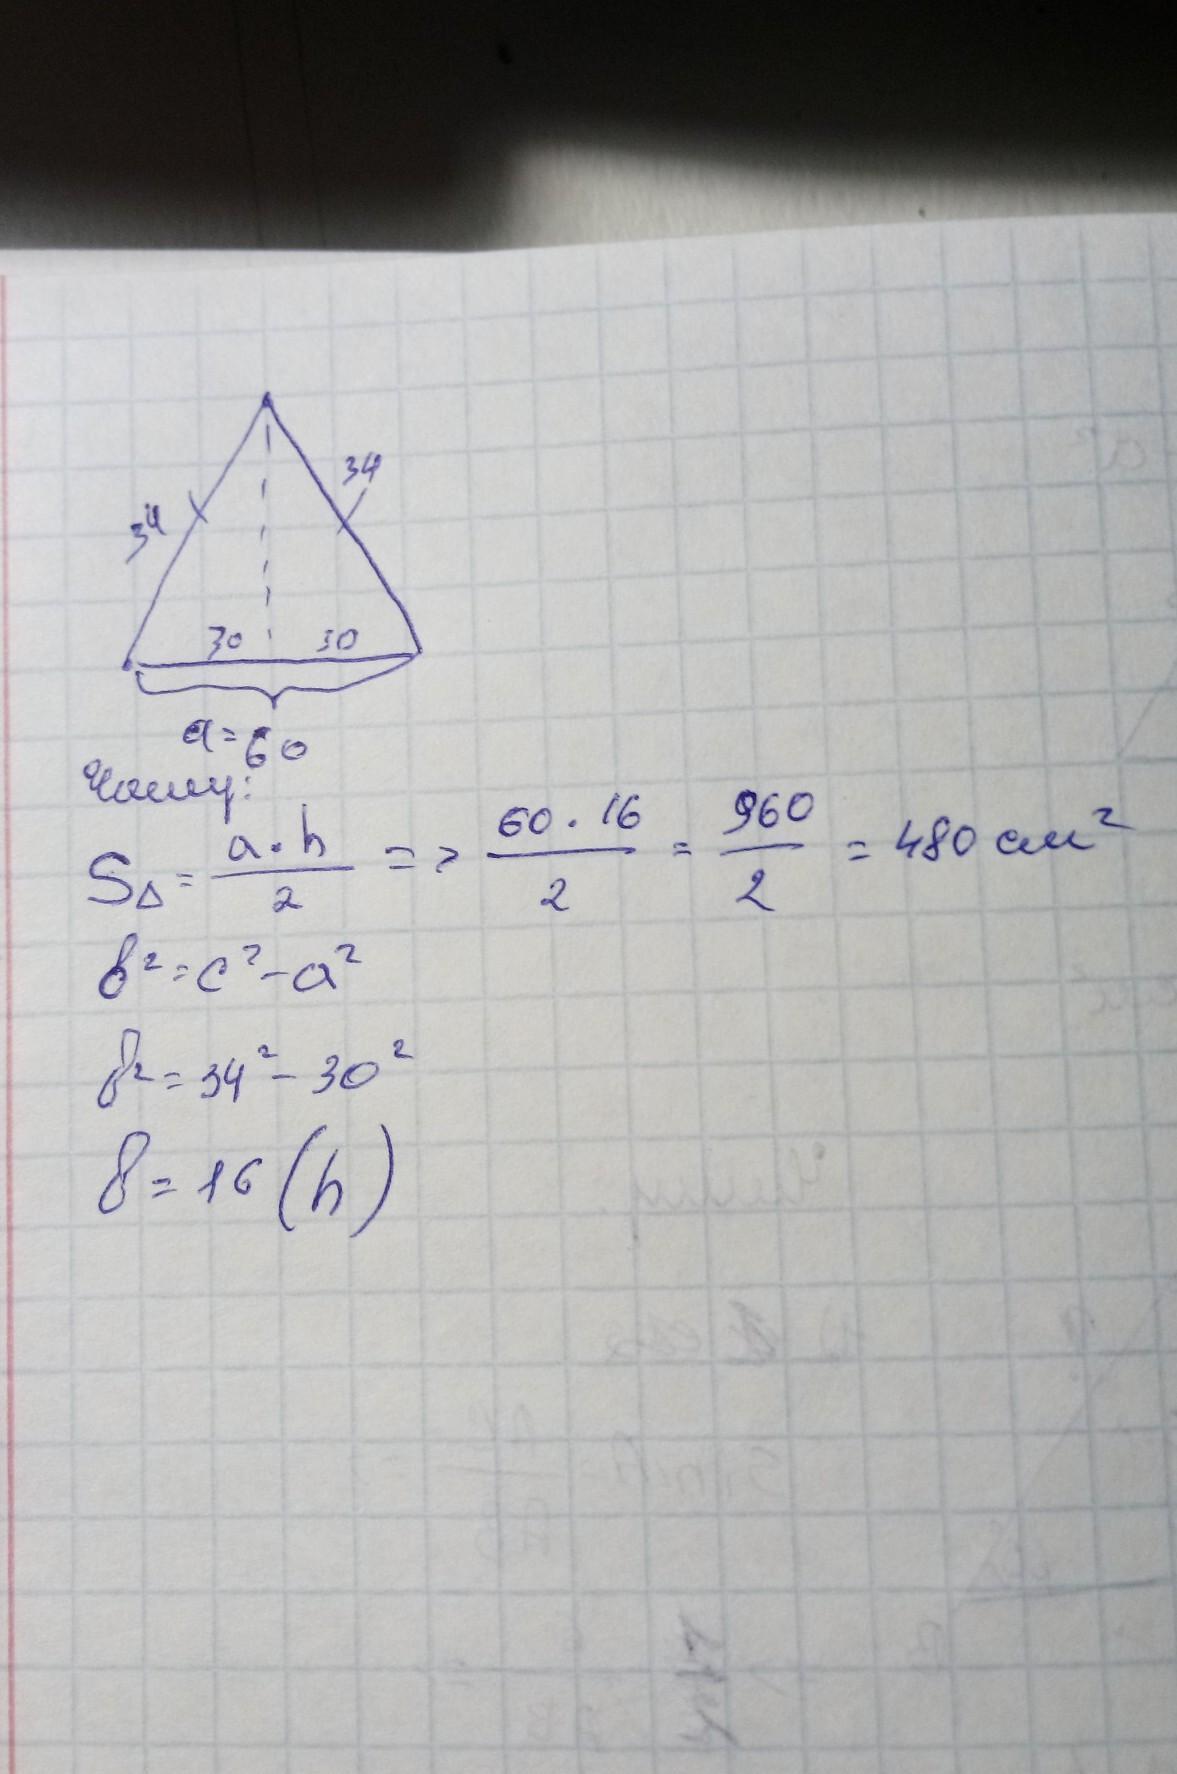 34
34
30 30
a = 60
Чому:
S△ = a · h / 2 => 60 · 16 / 2 = 960 / 2 = 480 см²
b² = c² - a²
b² = 34² - 30²
b = 16 (h)